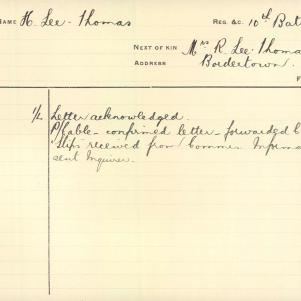 NAME H. Lee-Thomas REG. &C. 10th Bat
NEXT OF KIN Mrs R. Lee Thoma
ADDRESS Bordertown.
F
1/2 Letter acknowledged.
P/Cable - confirmed letter - forwarded C
Slips received from Commer. Informa
sent Inquirer.